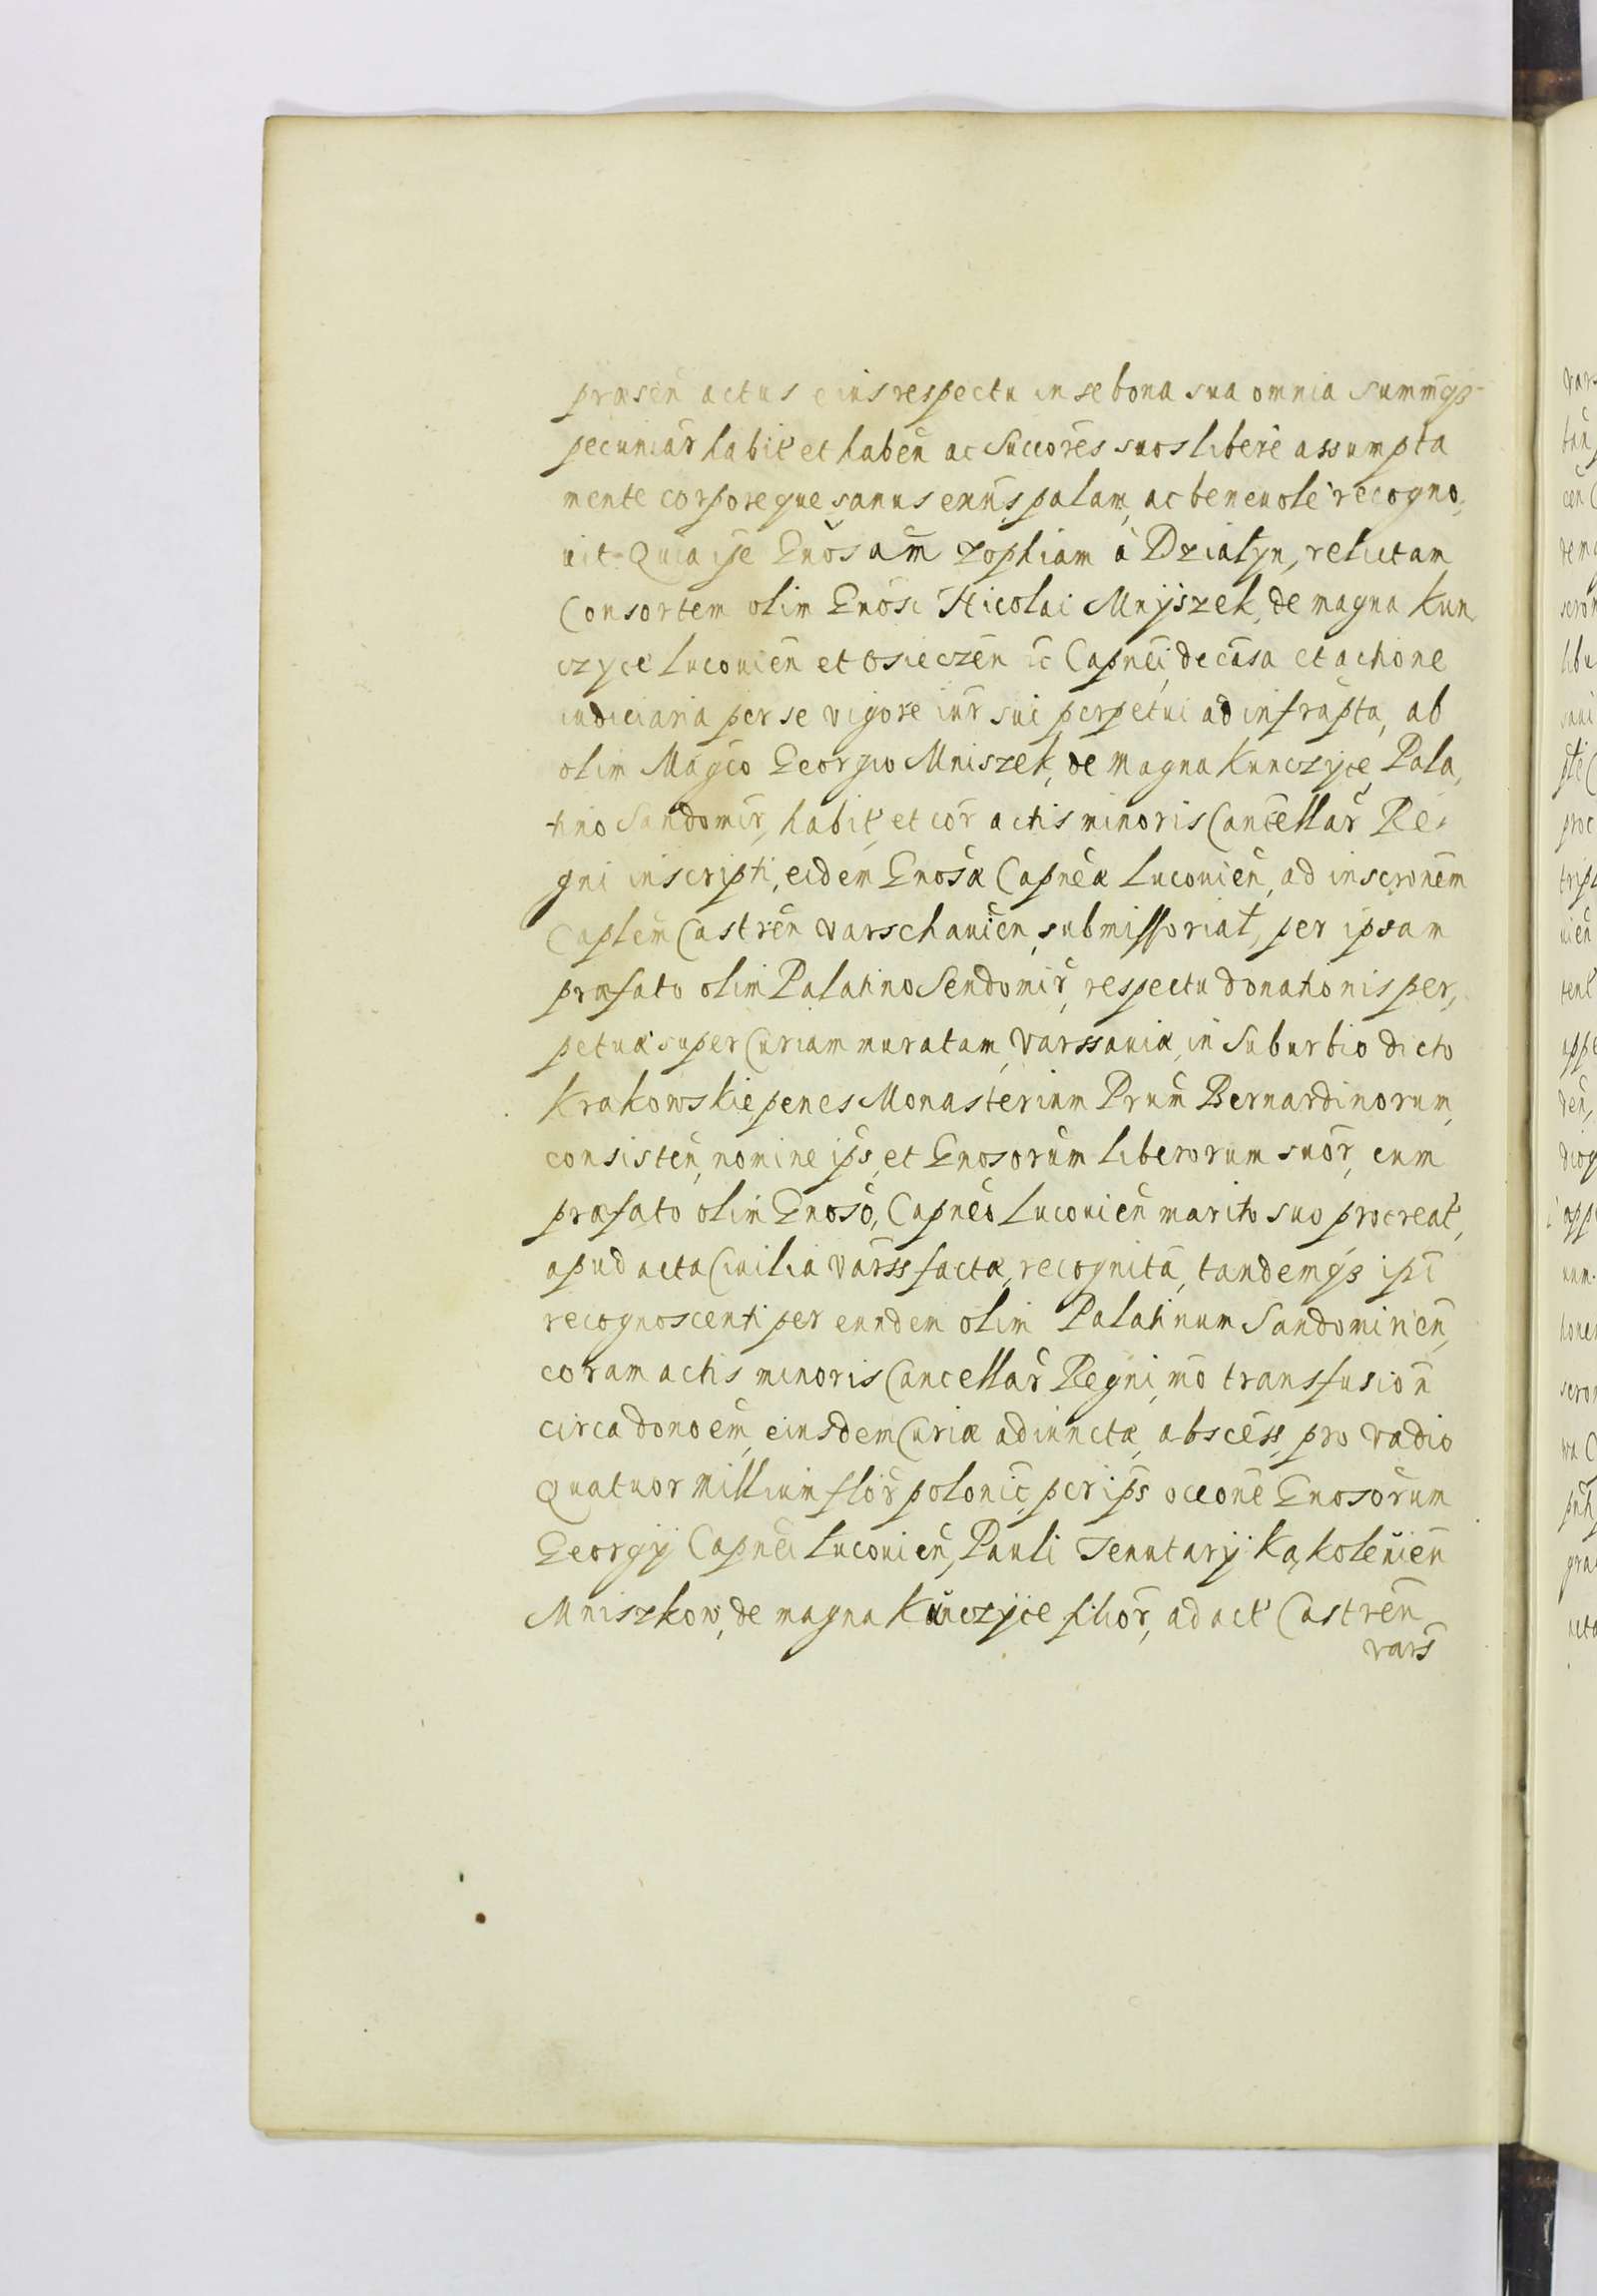 præsen̄ actus eius respectu in se bona sua omnia summ̄qȝ
pecuniar̄ habit̄ et haben̄ ac Succores̄ suos libere assumpta
mente corporeque sanus en̄ns, palam, ac beneuole recogno,
uit. Quia ipe Gnōsam̄ Zophiam à Działyn, relictam
Consortem olim Gnōsi Nicolai Mnÿszek, de magna Kun,
czyce Lucouien̄ et Osieczen̄ ic̄ Capnei, de cāsa et actione
iudiciaria per se vigore iur̄ sui perpetui ad infrapta, ab
olim Magco Georgio Mniszek, de magna Kunczyce, Pala,
tino Sandomir̄, habit̄, et cor̄ actis minoris Cancellar̄ Re,
gni inscripti, eidem Gnosæ Capneæ Lucouien̄, ad inscronem̄
Caplem̄ Castren̄ Varschauien̄, submissoriat̄, per ipsam
præfato olim Palatino Sendomir̄, respectu donationis per,
petuæ super Curiam muratam, Varssauiæ, in Suburbio dicto
Krakowskie, penes Monasterium Prum̄ Bernardinorum,
consisten̄, nomine ips̄, et Gnosorum̄ liberorum suor̄, cum
præfato olim Gnoso, Capneo Lucouien̄ marito suo procreat̄,
apud acta Ciuilia Varss̄ factæ, recognitā, tandemqȝ ipi̅
recognoscenti per eundem olim Palatinum Sandomirien̄,
coram actis minoris Cancellar̄ Regni, mō transfusion̄
circa donoem̄, eiusdem Curiæ adiunctæ, abscess̄, pro vadio
Quatuor Millium flor̄ polonic̄, per ips̄ occone Gnosorum̄
Georgÿ Capnei Lucouien̄, Pauli Tenutarÿ Kąkolewien̄
Mniszkow, de magna Kunczyce filior̄, ad act̄ Castren̄
vars̄